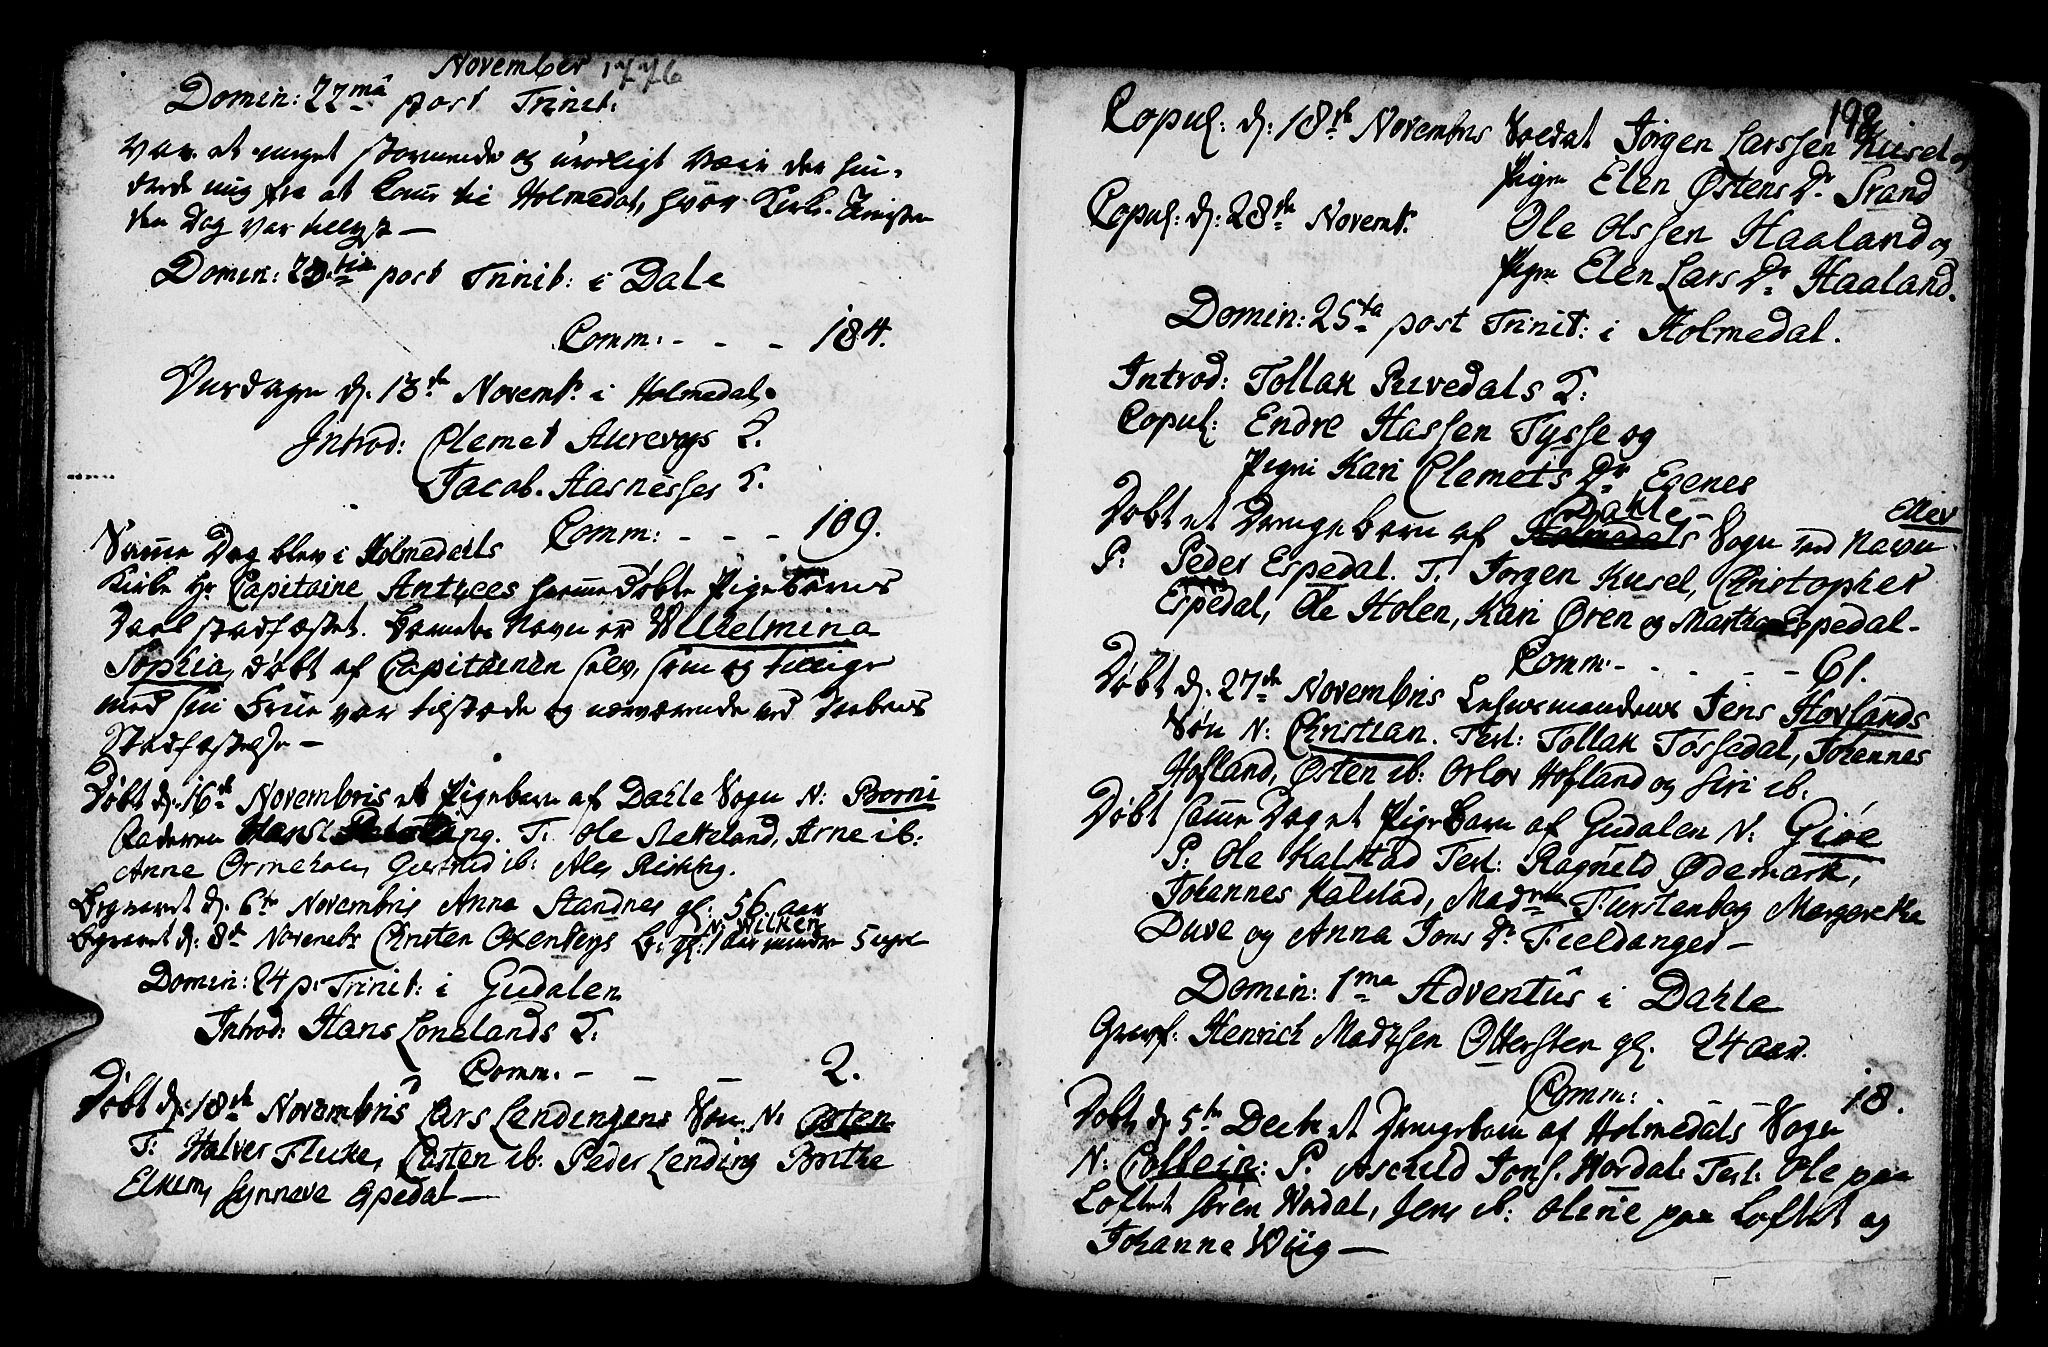 November 1776
Domin: 22må post Trinit:
var et meget stormende og uroeligt Veir der hin-
drede mig fra at komme til Holmedal, hvor Kirke-Tienisten
den Dag var tillyst —
Domin: 23tia post Trinit: i Dale
Comm: - - - 184.
Onsdagen d. 13de Novembr i Holmedal.
Introd: Clemet Aurevogs K.
Jacob Aarnesses K.
Comm: - - - 109.
Samme Dag blev i Holmedals
Kirke Hr Capitaine Antzees hiemme døbte Pige barns
Daab stadfæstet. Barnets Navn er Wilhelmina
Sophia, døbt af Capitainen selv, som og tillige
med sin Frue var tilstæde og nærværende ved Daabens
Stadfæstelse —
Døbt d. 16de Novembris et Pigebarn af Dahle Sogn N: Borni
Faderen Hans T: Ole Slekeland, Arne ib:
Anne Ormehoen, Gertrud ib: Ales Risting.
Begravet d. 6te Novembris Anna Standnes gl: 56 aar
N: Wilken
Begravet d: 8de Novembr Christen Oxenbergs B. gl: 1 aar mindre 5 uger
Domin: 24 p: Trinit: i Gudalen
Introd: Hans Lonelands K.
Comm. - - - 2.
Døbt d. 18de Novembris Lars Lendingens Søn N: Østen
T: Halver Flecke, Casten ib: Peder Lending Brithe
Elkem, Synneve Espedal —
192
Copul: d: 18de Novembris Soldat Jørgen Larssen Kusel og
Pigen Elen Østens Dr Strand
Copul: d: 28de Novembr. Ole Olssen Haaland og
Pigen Elen Lars Dr Haaland.
Domin: 25ta post Trinit: i Holmedal.
Introd: Tollak Puvedals K:
Copul: Endre Hassen Tysse og
Pigen Kari Clemets Dr Egenes
Dahle- Ellev
Døbt et Drengebarn af Holmedals Sogn ved Navn
P: Peder Espedal. T: Jørgen Kusel, Christopher
Espedal, Ole Holen, Kari Øren og Martha Espedal-
Comm: - - - - 61.
Døbt d. 27de Novembris Lehnsmandens Jens Hovlands
Søn N: Christian. Test: Tollak Tossedal, Johannes
Hofland, Østen ib: Orlov Hofland og Siri ib:
Døbt samme Dag et PigeBarn af Gudalen N: Giøe
P: Ole Kalstad Test: Ragneld Ødemark,
Johannes Kalstad, Madme Furstenberg Margrethe
Duve og Anna Jons Dr Fieldanger —
Domin: 1ma Adventûs i Dahle
Gravf: Henrich Madtzsen Ottersten gl: 24 aar.
Comm: - - 18.
Døbt d. 5te Decbr et Drengebarn af Holmedals Sogn
N: Colbein: P: Ascheld Jons. Wordal. Test: Ole paa
Loftet Søren Wordal, Jens ib: Oline paa Loftet og
Johanna Wiig —